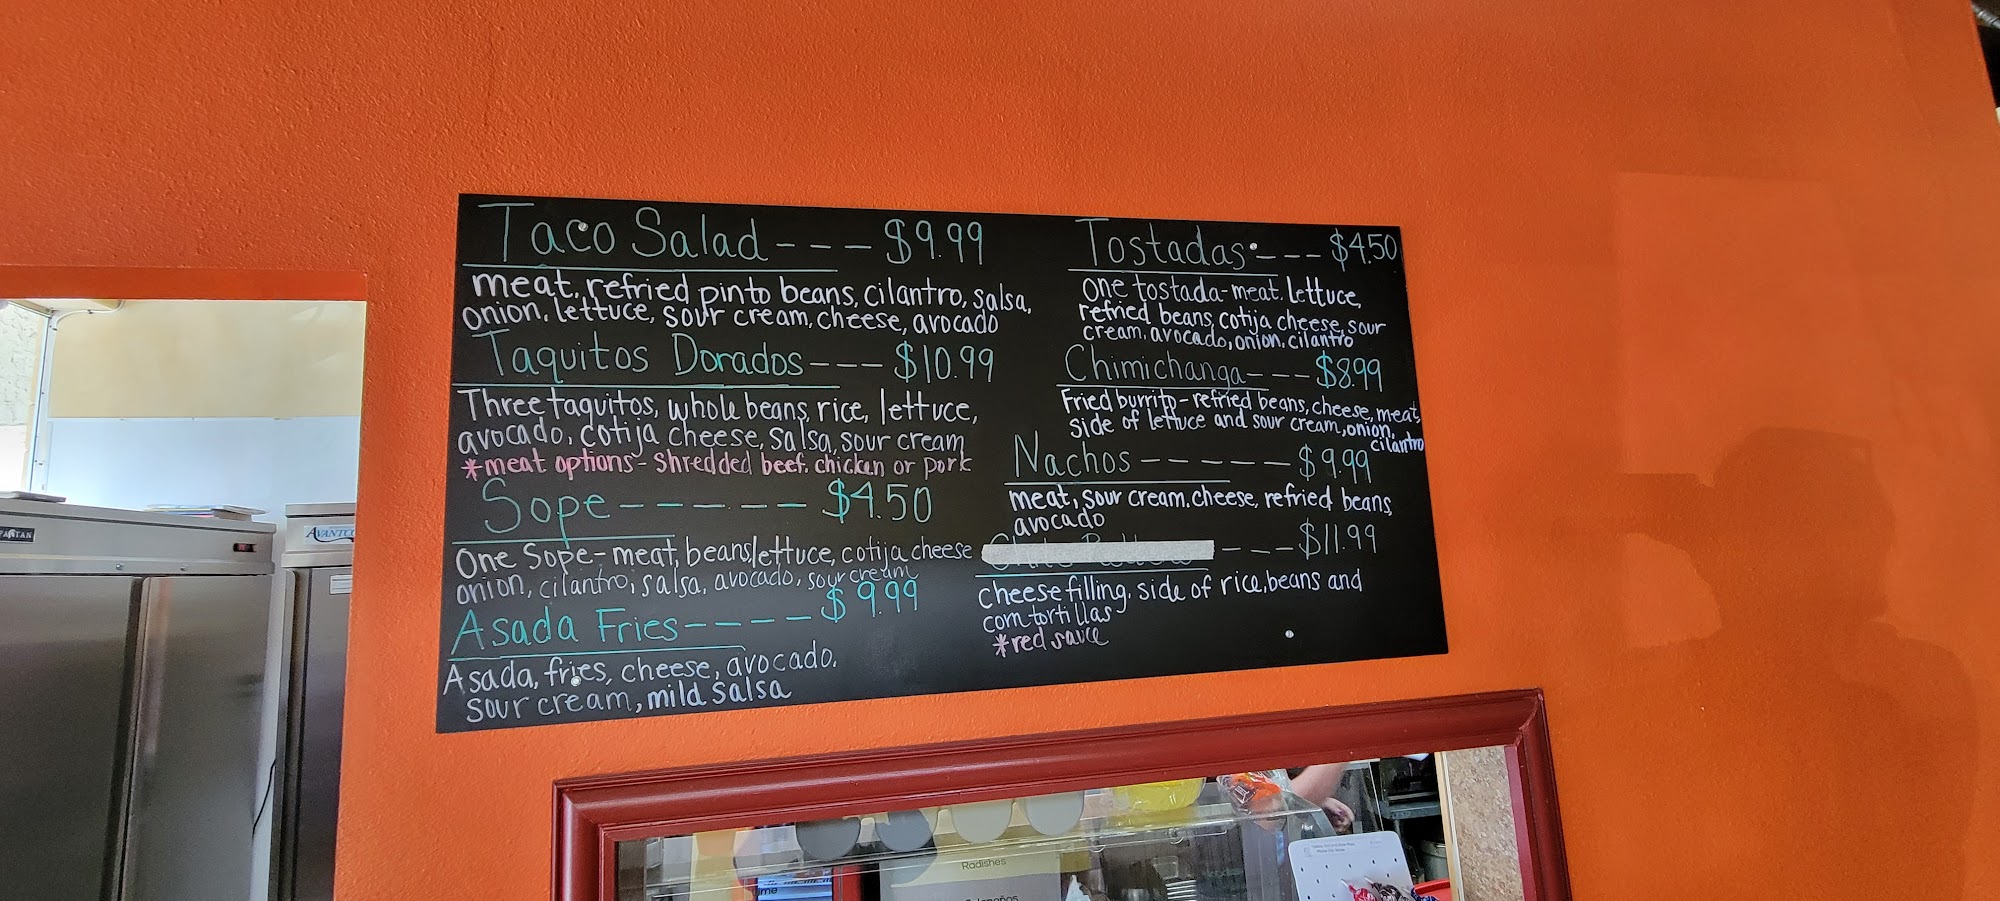 Taco Salad --- $9.99
meat, refried pinto beans, cilantro, salsa,
onion, lettuce, sour cream, cheese, avocado
Taquitos Dorados --- $10.99
Three taquitos, whole beans, rice, lettuce,
avocado, cotija cheese, salsa, sour cream
*meat options- Shredded beef, chicken or pork
Sope ------ $4.50
One Sope- meat, beans, lettuce, cotija cheese
onion, cilantro, salsa, avocado, sour cream
Asada Fries ---- $9.99
Asada, fries, cheese, avocado,
sour cream, mild salsa
Tostadas --- $4.50
one tostada-meat, lettuce,
refried beans, cotija cheese, sour
cream, avocado, onion, cilantro
Chimichanga --- $8.99
Fried burrito - refried beans, cheese, meat,
side of lettuce and sour cream, onion,
cilantro
Nachos ------ $9.99
meat, sour cream, cheese, refried beans,
avocado
--- $11.99
cheese filling, side of rice, beans and
corn tortillas
*red sauce
AVANTCO
Radishes